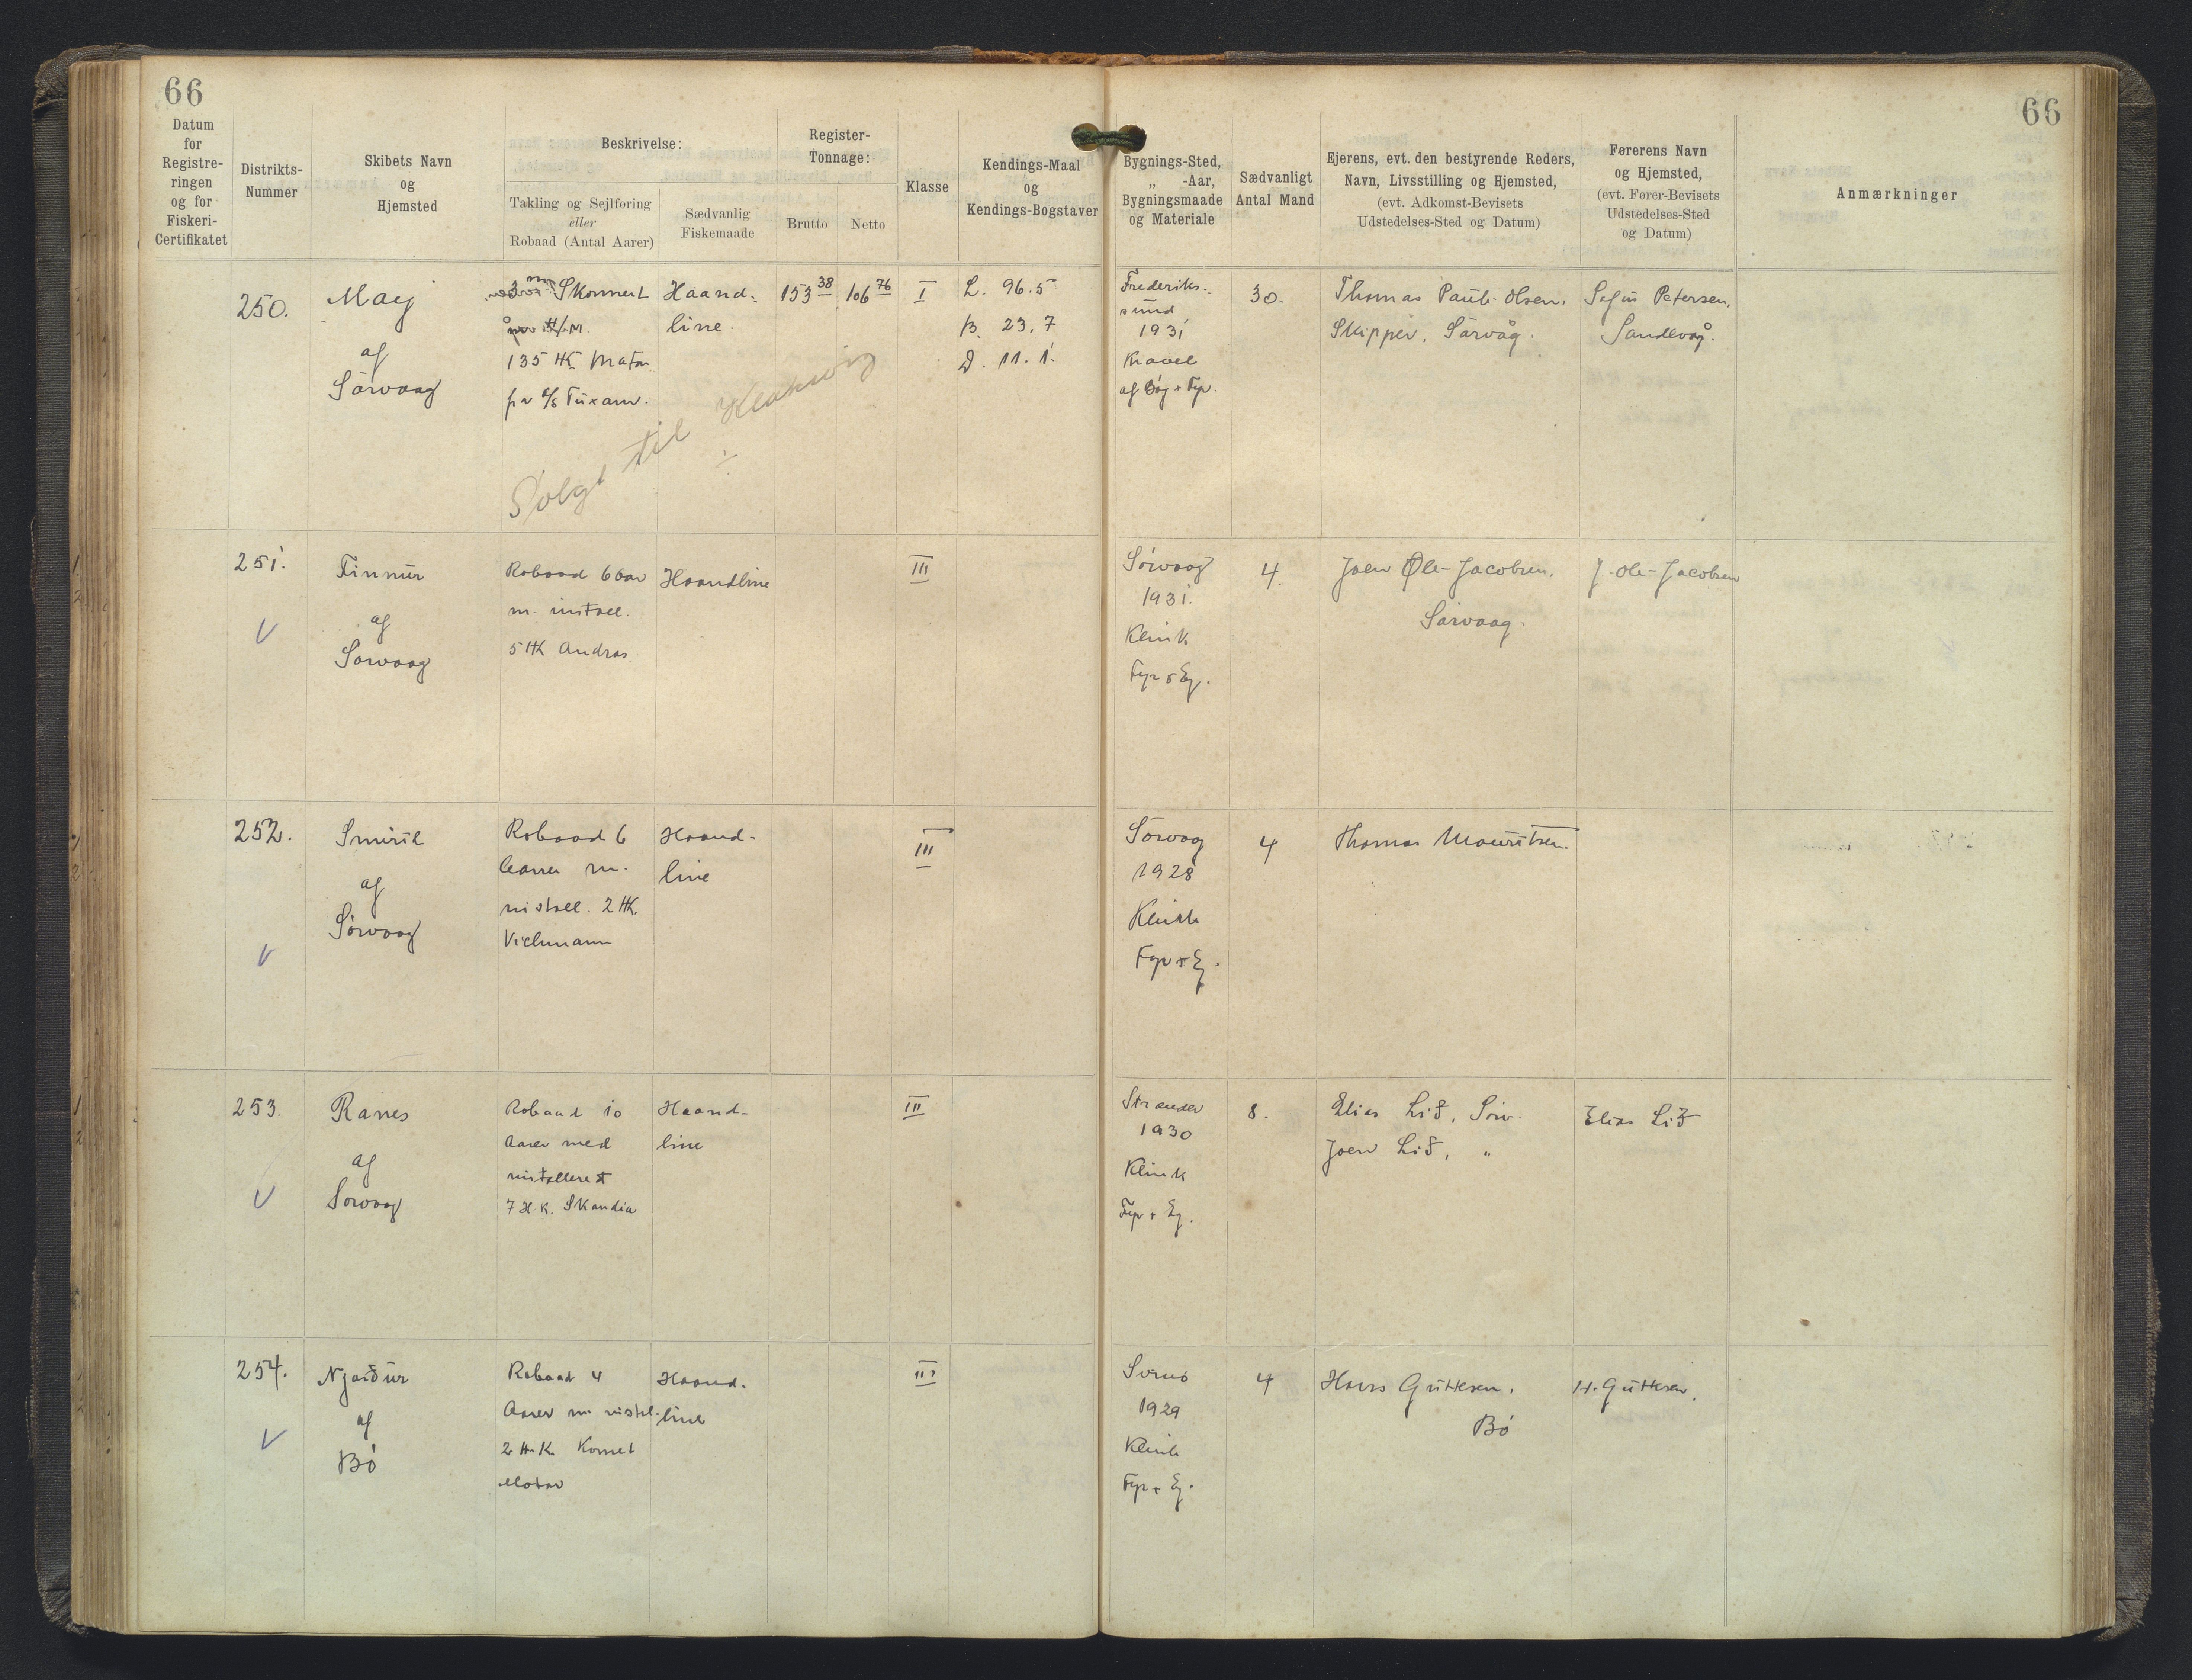 66
66
Datum
for
Registre-
ringen
og for
Fiskeri-
Certifikatet
Distrikts-
Nummer
Skibets Navn
og
Hjemsted
Beskrivelse:
Takling og Sejlføring
eller
Robaad (Antal Aarer)
Sædvanlig
Fiskemaade
Register-
Tonnage:
Brutto
Netto
Klasse
Kendings-Maal
og
Kendings-Bogstaver
Bygnings-Sted,
„ -Aar,
Bygningsmaade
og Materiale
Sædvanligt
Antal Mand
Ejerens, evt. den bestyrende Reders,
Navn, Livsstilling og Hjemsted,
(evt. Adkomst-Bevisets
Udstedelses-Sted og Datum)
Førerens Navn
og Hjemsted,
(evt. Fører-Bevisets
Udstedelses-Sted
og Datum)
Anmærkninger
250.
May
af
Sörvaag
3 m. Skonnert
135 HK Motor
fra A/S Tuxam.
Solgt til Klaksvig
Haand-
line.
153 38
106 76
I
L. 96.5
B. 23.7
D. 11.1
Frederiks-
sund
1931
Kravel
af Bøg + Fyr.
30.
Thomas Pauli Olsen.
Skipper, Sörvåg.
Petersen,
Sandevåg.
251.
Finnur
af
Sörvaag
Robaad 6 Aar
m. instal.
5 HK Andros
Haandline
III
Sörvaag
1931.
Klink
Fyr & Eg.
4
Joen Ole-Jacobsen,
Sörvaag.
J. Ole-Jacobsen
252.
Smiril
af
Sörvaag
Robaad 6
Aarer m.
install. 2 HK.
Vichmann
Haand-
line
III
Sörvaag
1928
Klink
Fyr + Eg.
4
Thomas Mouritsen.
253.
Ranes
af
Sorvaag
Robaad 10
Aarer med
installeret
7 H.K. Skandia
Haand-
line
III
Strander
1930
Klink
Fyr + Eg.
8.
Elias Lið, Sörv.
Joen Lið, "
Elias Lið
254.
Njørður
af
Bö
Robaad 4
Aarer m. instal.
2 H.K. Komet
Motor
Haand-
line
III
1929
Klink
Fyr + Eg.
4
Hans Guttesen.
Bö
H. Guttesen.